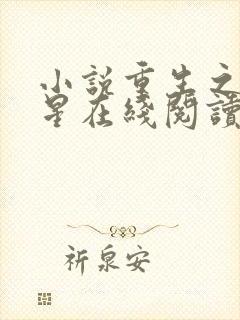 小說重生之
星在綫閱讀
祈泉安